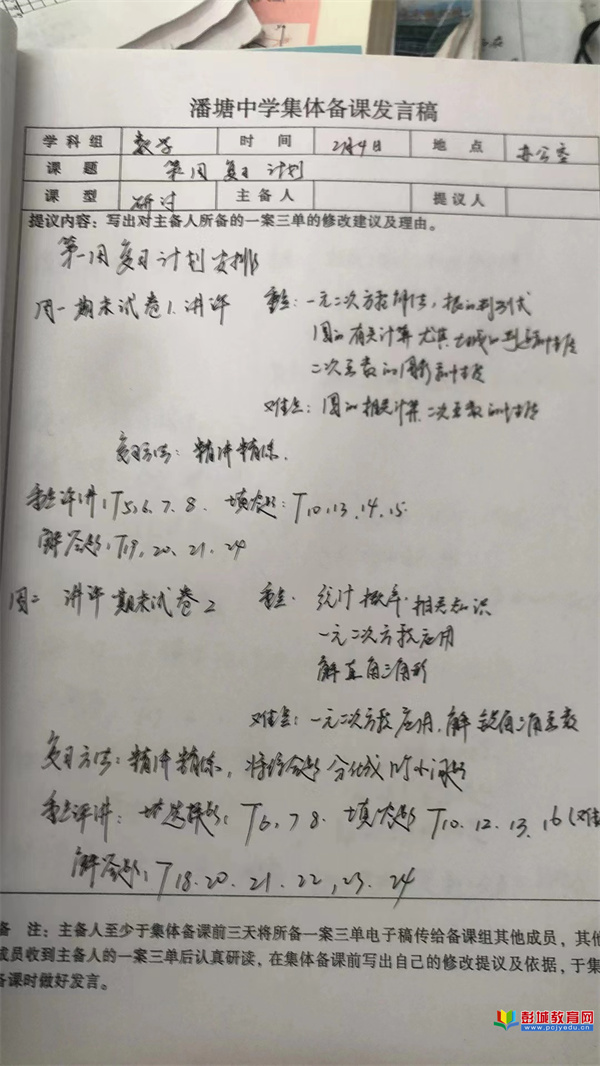 潘塘中学集体备课发言稿
学科组 数学 时间 2月4日 地点 办公室
课题 第一周复习计划
课型 研讨 主备人 提议人
提议内容：写出对主备人所备的一案三单的修改建议及理由。
第一周复习计划安排
周一 期末试卷1.讲评 重点：一元二次方程解法，根的判别式
圆的有关计算尤其切线的判定和性质
二次函数的图形和性质
难点：圆的相关计算.二次函数的性质
复习方法：精讲精练.
重点评讲：T5,6.7.8. 填空题：T10.13.14.15.
解答题：T19,20.21.24
周二 讲评期末试卷2 重点. 统计概率.相关知识
一元二次方程应用
解直角三角形
难点：一元二次方程应用.解锐角三角函数
复习方法：精讲精练，将综合题分化成小问题
重点评讲：选择题：T6,7 8. 填空题 T10.12.13.16
解答题：T18.20.21.22,23.24
备 注：主备人至少于集体备课前三天将所备一案三单电子稿传给备课组其他成员，其他
成员收到主备人的一案三单后认真研读，在集体备课前写出自己的修改提议及依据，于集
备课时做好发言。
彭城教育网
www.pcjyedu.cn